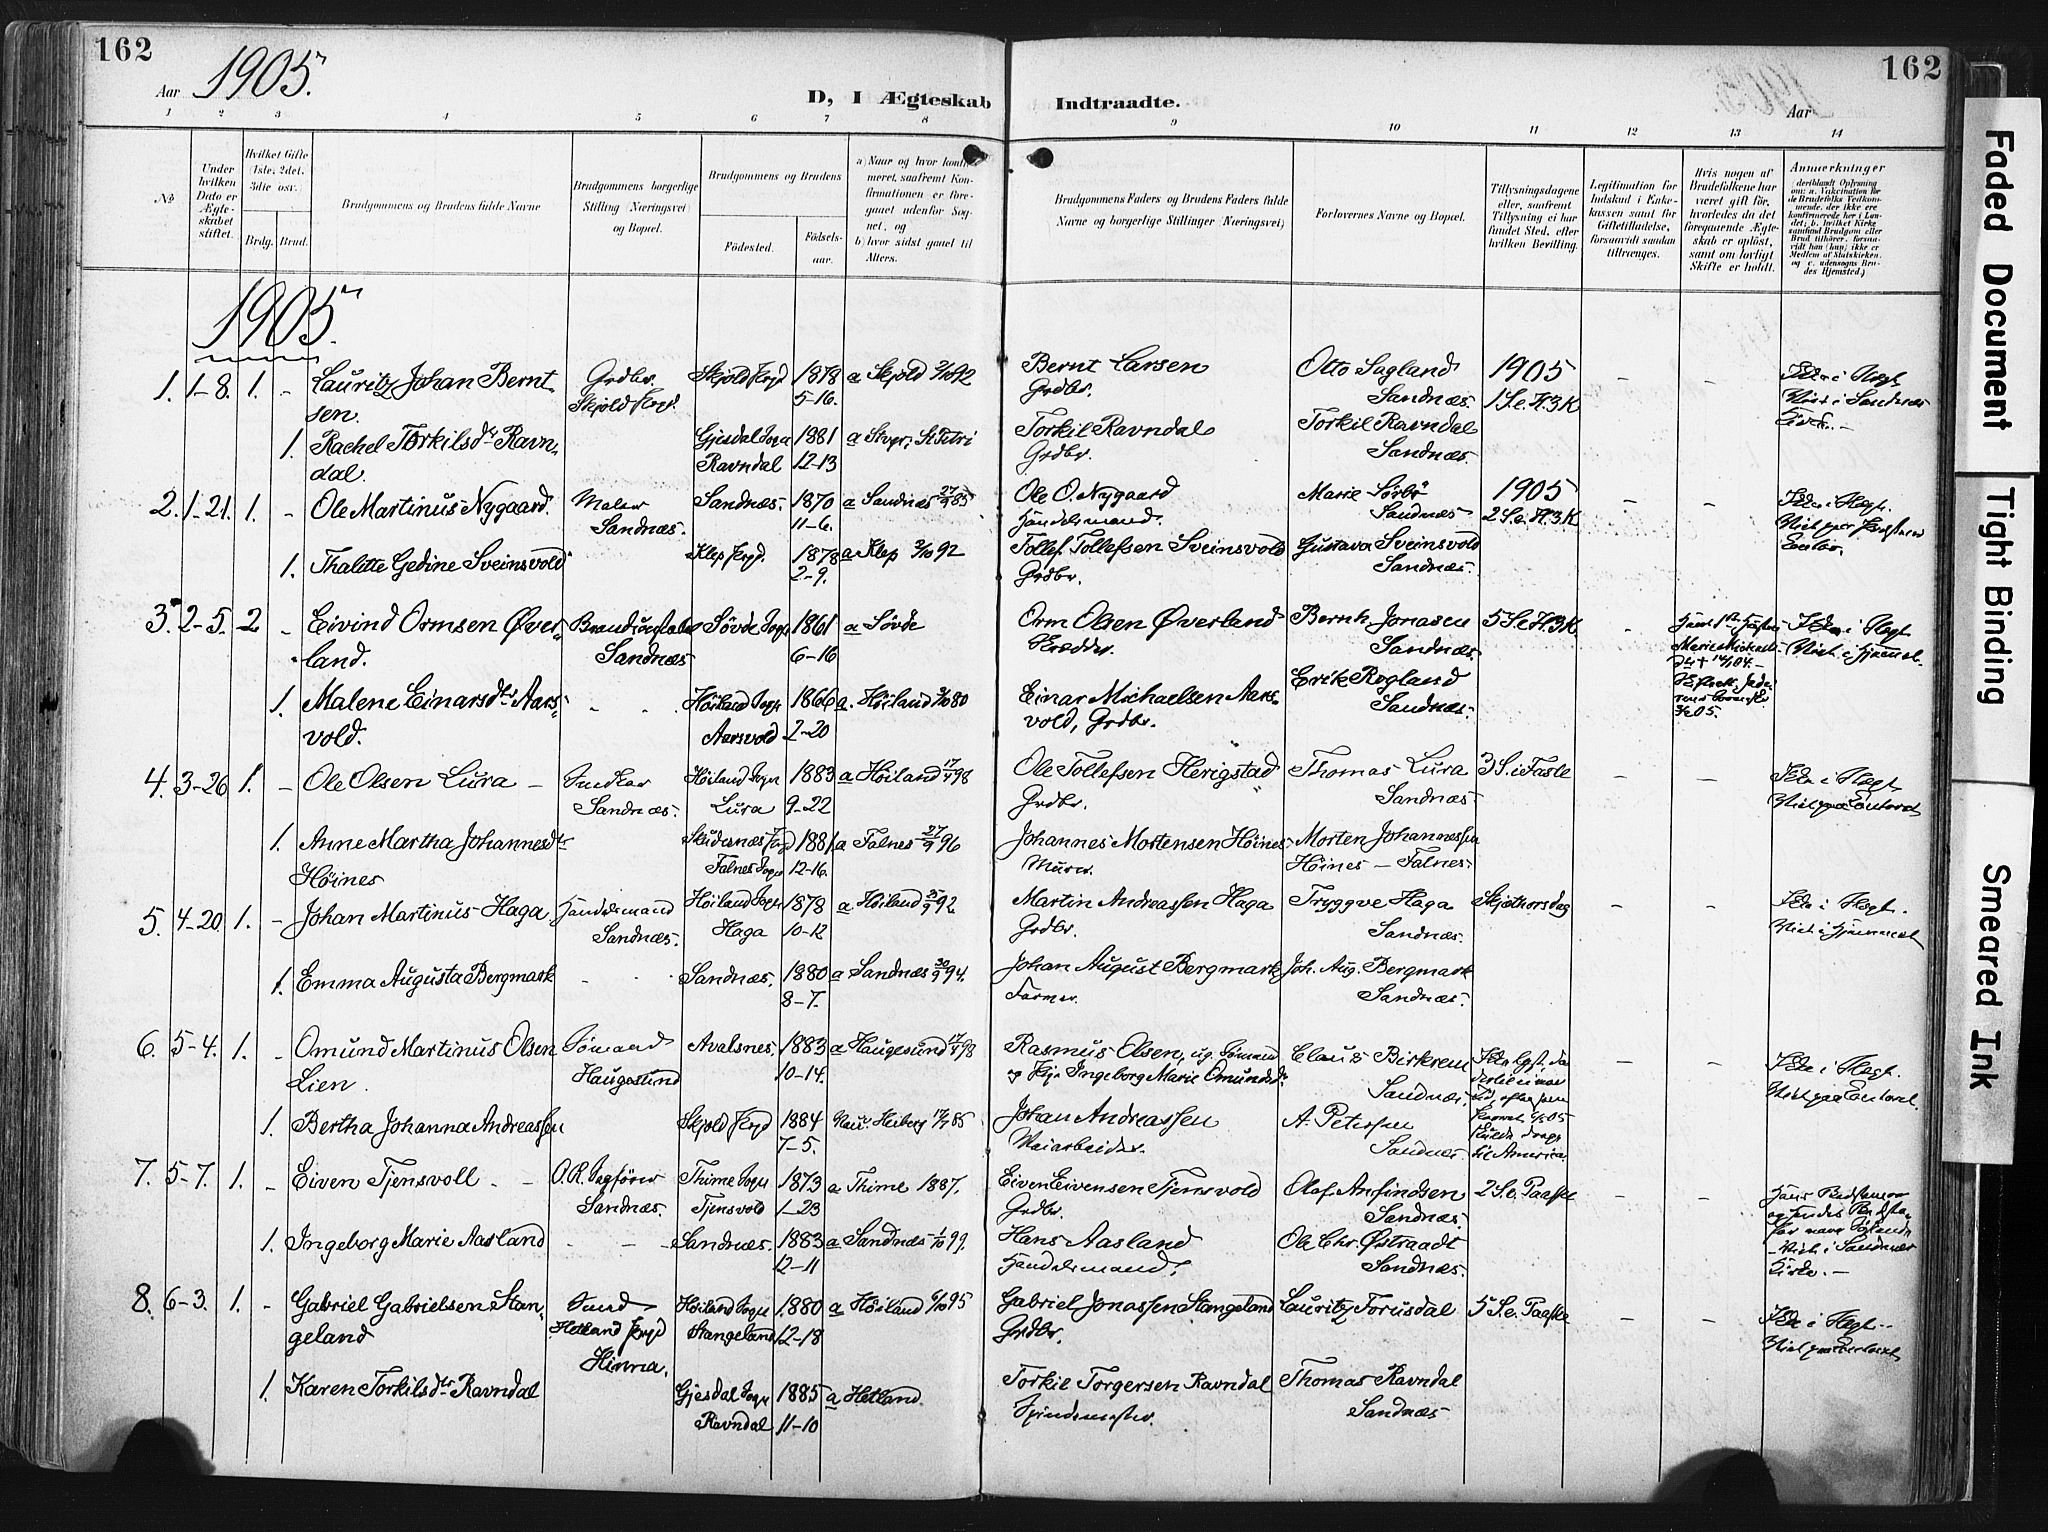 162
Aar 1905.
D, I Ægteskab Indtraadte.
Aar
162
1 2 3 4 5 6 7 8 9 10 11 12 13 14
№
Under hvilken Dato er Ægteskabet stiftet.
Hvilket Gifte (1ste, 2det, 3die osv.)
Brdg. Brud.
Brudgommens og Brudens fulde Navne
Brudgommens borgerlige Stilling (Næringsvei) og Bopæl.
Brudgommens og Brudens
Fødested.
Fødselsaar.
a) Naar og hvor konfirmeret, saafremt Konfirmationen er foregaaet udenfor Sognet, og
b) hvor sidst gaaet til Alters.
Brudgommens Faders og Brudens Faders fulde Navne og borgerlige Stillinger (Næringsvei)
Forlovernes Navne og Bopæl.
Tillysningsdagene eller, saafremt Tillysning ei har fundet Sted, efter hvilken Bevilling.
Legitimation for Indskud i Enkekassen samt for Giftetilladelse, forsaavidt saadan tiltrænges.
Hvis nogen af Brudefolkene har været gift før, hvorledes da det foregaaende Ægteskab er opløst, samt om lovligt Skifte er holdt.
Anmerkninger
1905.
1. 1-8. 1. - Lauritz Johan Berntsen. Grdbr. Skjold Prgd. Skjold Prgd 1878 5-16. a Skjold
Bernt Larsen Grdbr. Otto Sagland Sandnæs. 1905 1 S. e. H. 3 K
1. Rachel Torkilsdtr Ravndal. Gjesdal Sogn Ravndal 1881 12-13 a Stvgr. St Petri
Torkil Ravndal Grdbr. Torkil Ravndal Sandnæs.
2. 1-21. 1. - Ole Martinus Nygaard. Maler Sandnæs. Sandnæs. 1870 11-6. a Sandnæs 27/9 85
Ole O. Nygaard Handelsmand. Marie Sørbø Sandnæs 1905 2 S. e. H. 3 K
1. Thalitte Gedine Sveinsvold Klep Prgd. 1878 2-9. a Klep 2/10 92
Tollef Tollefsen Sveinsvold Grdbr. Gustava Sveinsvold Sandnæs.
3. 2-5. 2 - Eivind Ormsen Øverland. Sandnæs Søvde Sogn 1861 6-16 a Søvde
Orm Olsen Øverland Skrædder. Bernh Jonasen Sandnæs. 5 S. e. H. 3 K
1. Malene Einarsdtr Aarsvold. - - Høiland Sogn Aarsvold 1866 2-20 a. Høiland 3/10 80
Einar Michaelsen Aarsvold, Grdbr. Erik Rogland Sandnæs.
4. 3-26 1. - Ole Olsen Lura - Snedker Sandnæs. Høiland Sogn Lura 1883 9-22 a Høiland 17/4 98
Ole Tollefsen Herigstad Grdbr. Thomas Lura Sandnæs. 3 S. i Faste
1. Anne Martha Johannesdtr Høines Skudernæs Prgd Falnes Sogn 1881 12-16. a Falnes 27/9 96
Johannes Mortensen Høines Murer. Morten Johannessen Høines - Falnes.
5. 4-20. 1. - Johan Martinus Haga. Handelsmand Sandnæs. Høiland Sogn Haga 1878 10-12 a Høiland 25/9 92
Martin Andreassen Haga Grdbr. Tryggve Haga Sandnæs. Skjærthorsdag
1. Emma Augusta Bergmark - - Sandnæs. 1880 8-7. a Sandnæs 30/9 94.
Johan August Bergmark Farmer. Joh. Aug. Bergmark Sandnæs.
6. 5-4. 1. - Omund Martinus Olsen Lien. Sømand Haugesund Avalsnes. 1883 10-14. a Haugesund 17/4 98
Rasmus Olsen, ug. Sømand og Pige Ingeborg Marie Omundsdtr Claus Birkrem Sandnæs.
1. Bertha Johanna Andreassen Skjold Prgd 1884 7-5.
Johan Andreassen Veiarbeider. A. Petersen Sandnæs. til America.
7. 5-7. 1. - Eiven Tjensvoll - - O.R. Sagfører Sandnæs. Thime Sogn Tjensvold 1873 1-23 a Thime 1887.
Eiven Eivensen Tjensvold Grdbr. Olaf Anfindsen Sandnæs. 2 S. e. Paaske
1. Ingeborg Marie Aasland - - - Sandnæs. 1883 12-11 a Sandnæs 1/10 99.
Hans Aasland Handelsmand. Ole Chr. Østraadt Sandnæs. Viet i Sandnæs Kirke. -
8. 6-3. 1. - Gabriel Gabrielsen Stangeland Smed Hetland Prgd Hinna. Høiland Sogn Stangeland 1880 12-18 a Høiland 6/10 95
Gabriel Jonassen Stangeland Grdbr. Lauritz Torusdal 5 S. e. Paaske
1. Karen Torkilsdtr Ravndal Gjesdal Sogn Ravndal 1885 11-10 a Hetland
Torkil Torgersen Ravndal Spindemester. Thomas Ravndal Sandnæs
Faded Document
Tight Binding
Smeared Ink